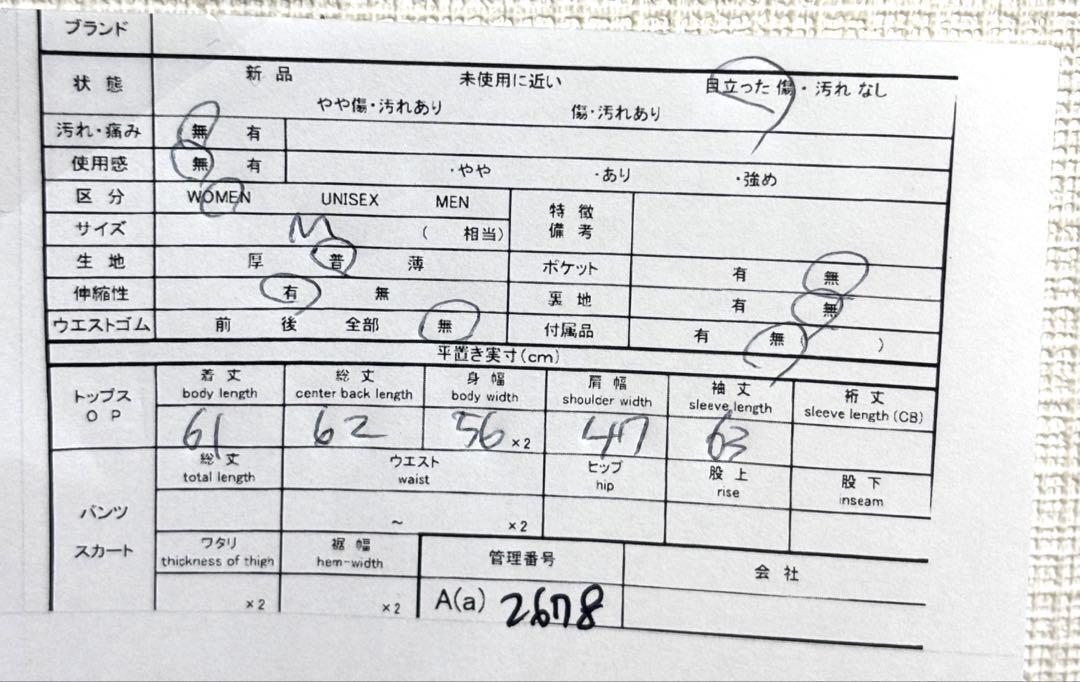 ブランド
状態 新品 未使用に近い 目立った傷・汚れなし
やや傷・汚れあり 傷・汚れあり
汚れ・痛み 無 有
使用感 無 有 ・やや ・あり ・強め
区分 WOMEN UNISEX MEN 特徴備考
サイズ M ( 相当)
生地 厚 普 薄 ポケット 有 無
伸縮性 有 無 裏地 有 無
ウエストゴム 前 後 全部 無 付属品 有 無( )
平置き実寸(cm)
トップス OP 着丈 総丈 身幅 肩幅 袖丈 裄丈
body length center back length body width shoulder width sleeve length sleeve length(CB)
61 62 56 ×2 47 63
パンツ スカート 総丈 ウエスト ヒップ 股上 股下
total length waist hip rise inseam
~ ×2
ワタリ 裾幅 管理番号 会社
thickness of thigh hem-width
×2 ×2 A(a) 2678